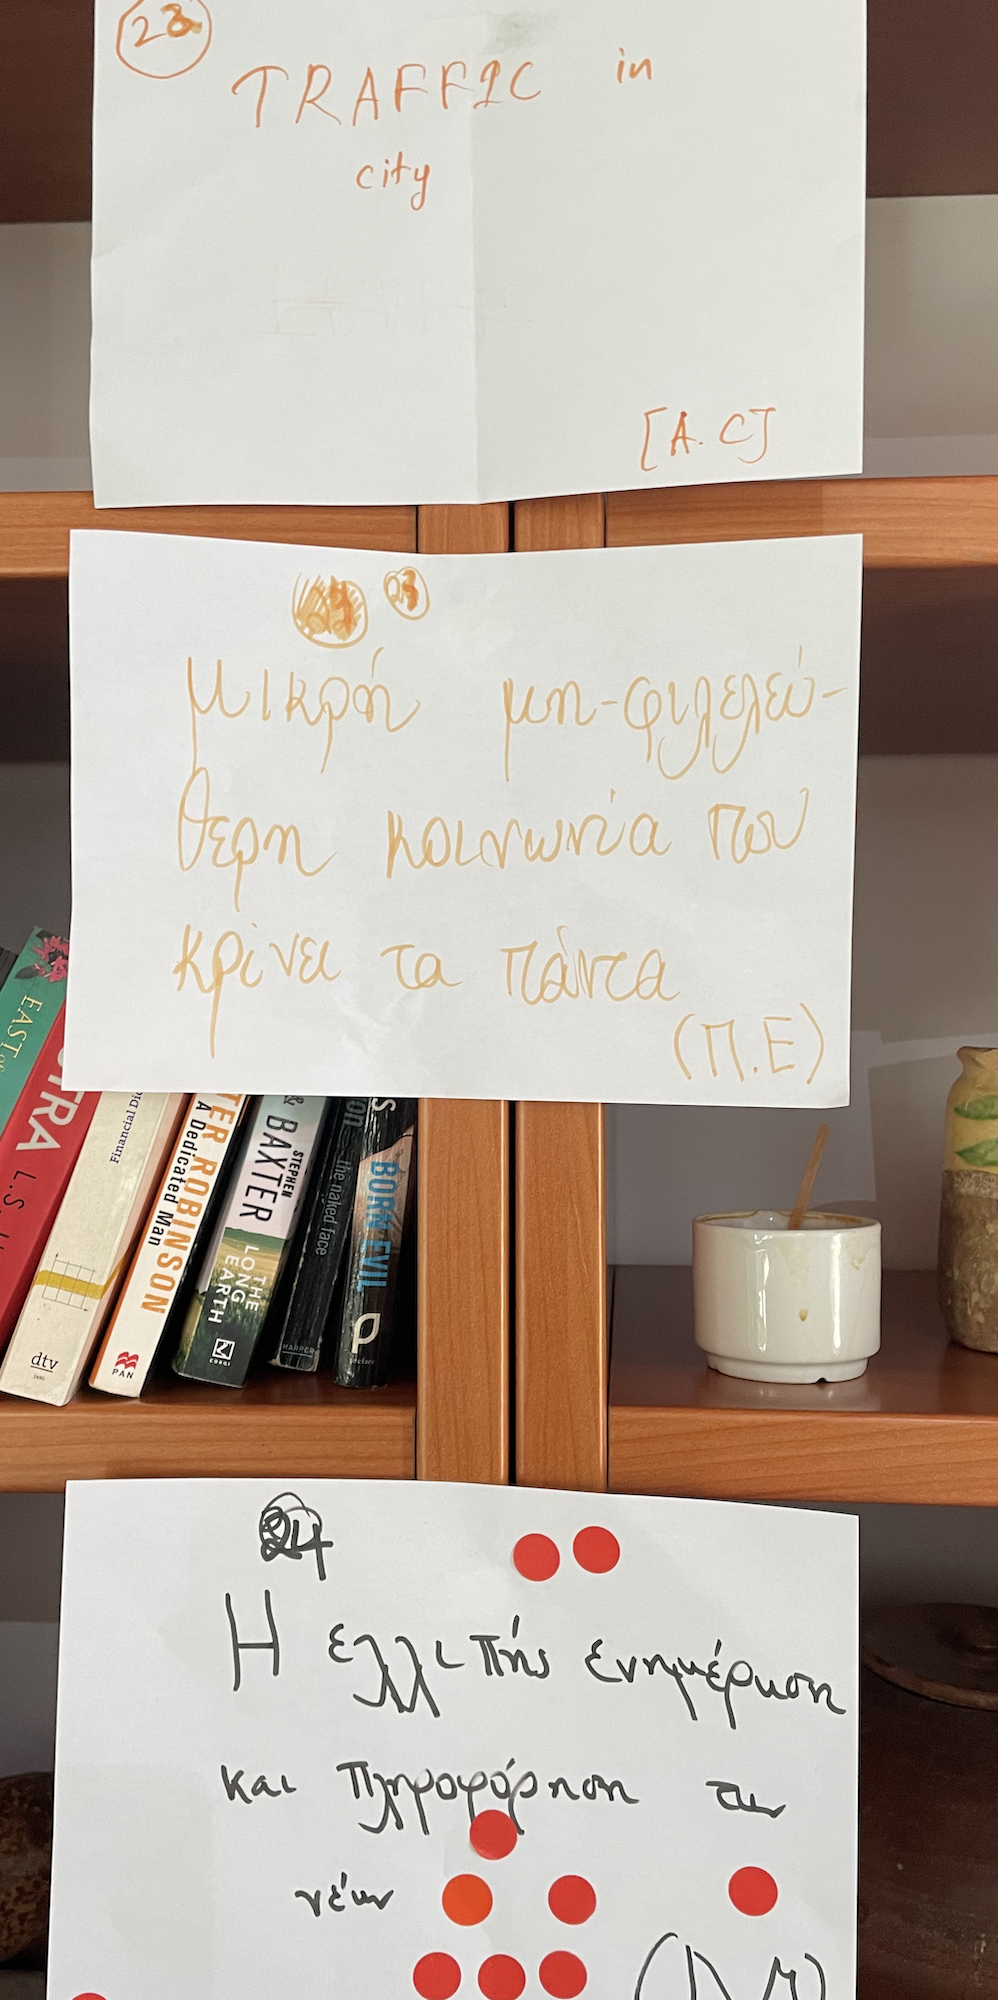 TRAFFIC in
city
[A.C]
23
μικρή μη-φιλελεύ-
θερη κοινωνία που
κρίνει τα πάντα
(Π.Ε)
EAST of
TRA
L.S.
Financial Dic
dtv
TER ROBINSON
A Dedicated Man
PAN
& STEPHEN
BAXTER
THE
LONG
EARTH
CORGI
the naked face
HARPER
BORN EVIL
preface
24
Η ελλιπής ενημέρωση
και πληροφόρηση των
νέων